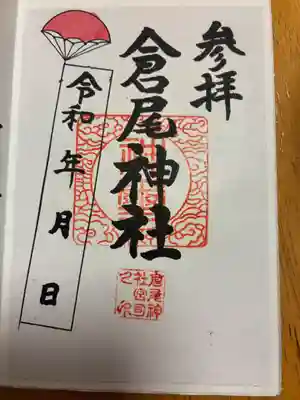 参拝
倉尾神社
令和 年 月 日
倉尾神
社宮司
之印